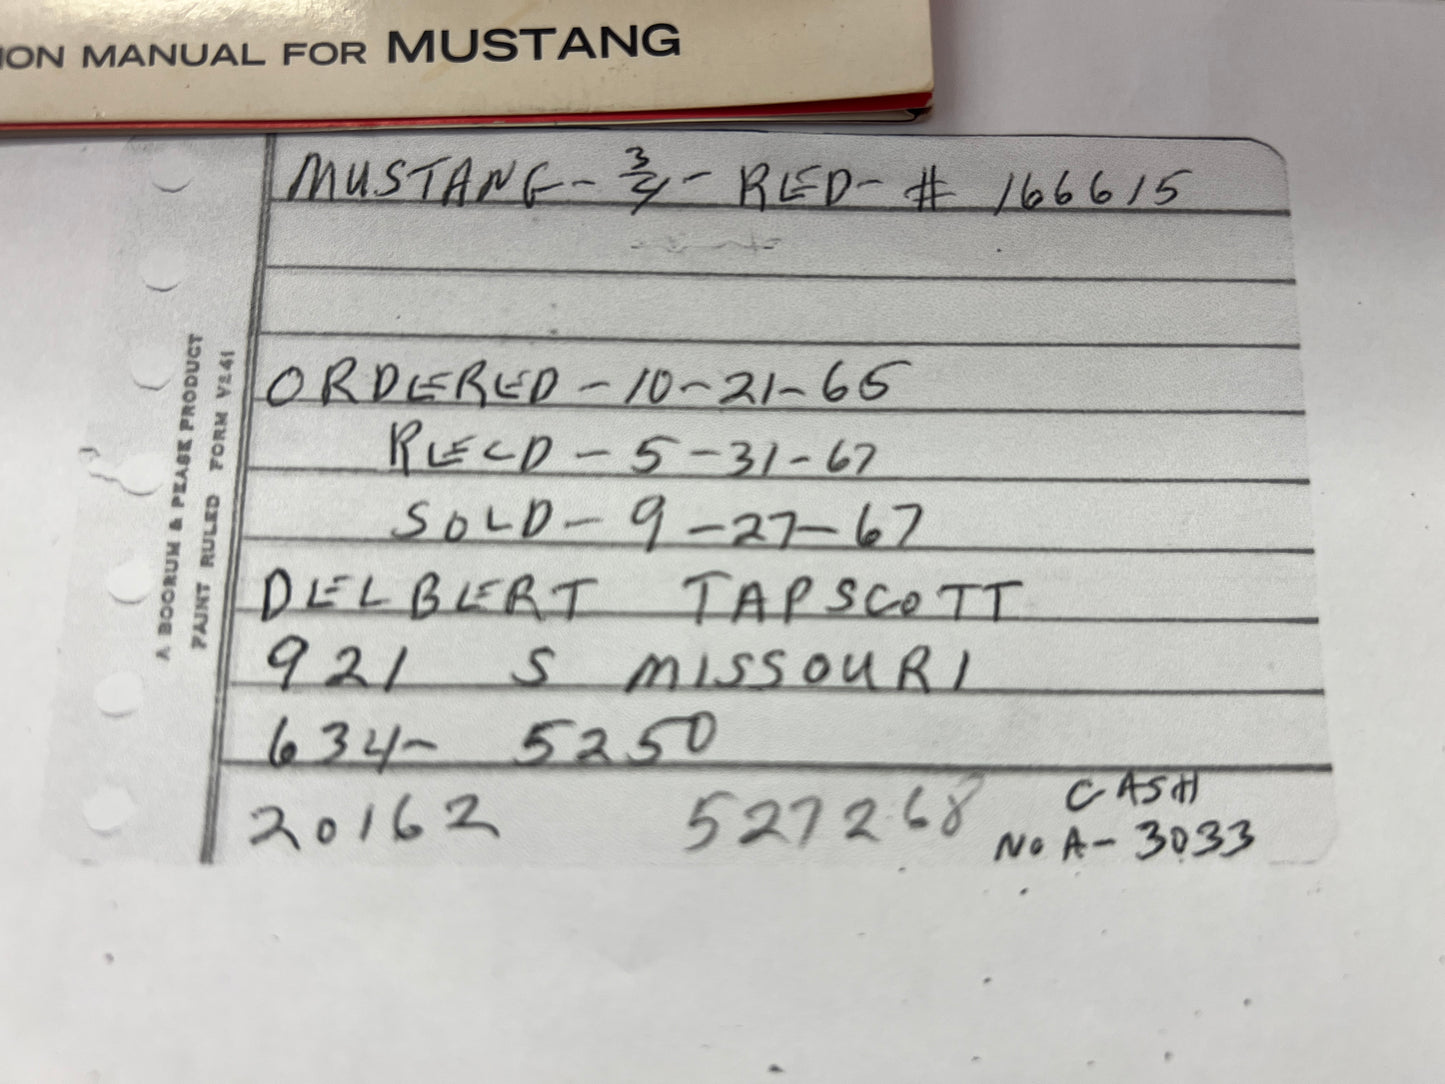 ION MANUAL FOR MUSTANG
MUSTANG - 3/4 - RED - # 166615
ORDERED - 10-21-65
RECD - 5-31-67
SOLD - 9-27-67
DELBERT TAPSCOTT
921 S MISSOURI
634- 5250
20162 5272 68 CASH
No A- 3033
A BOORUM & PEASE PRODUCT
FAINT RULED FORM V241